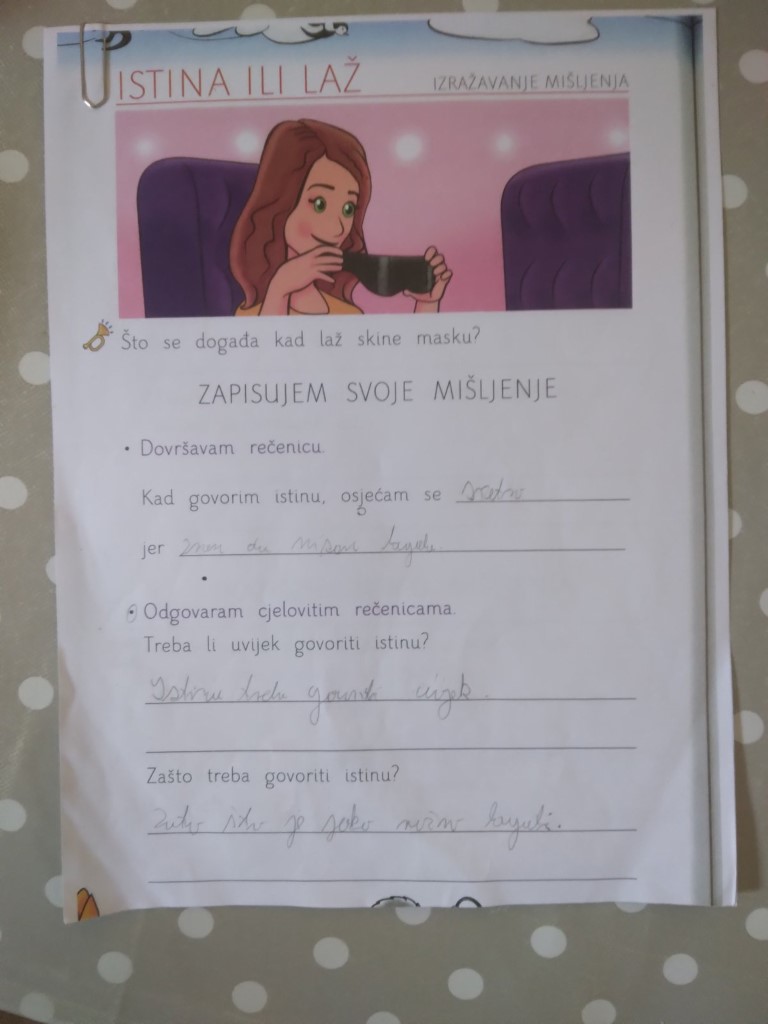 ISTINA ILI LAŽ
IZRAŽAVANJE MIŠLJENJA
Što se događa kad laž skine masku?
ZAPISUJEM SVOJE MIŠLJENJE
• Dovršavam rečenicu.
Kad govorim istinu, osjećam se
jer nisam
• Odgovaram cjelovitim rečenicama.
Treba li uvijek govoriti istinu?
Istinu treba govoriti uvijek.
Zašto treba govoriti istinu?
Zato što je jako ružno lagati.